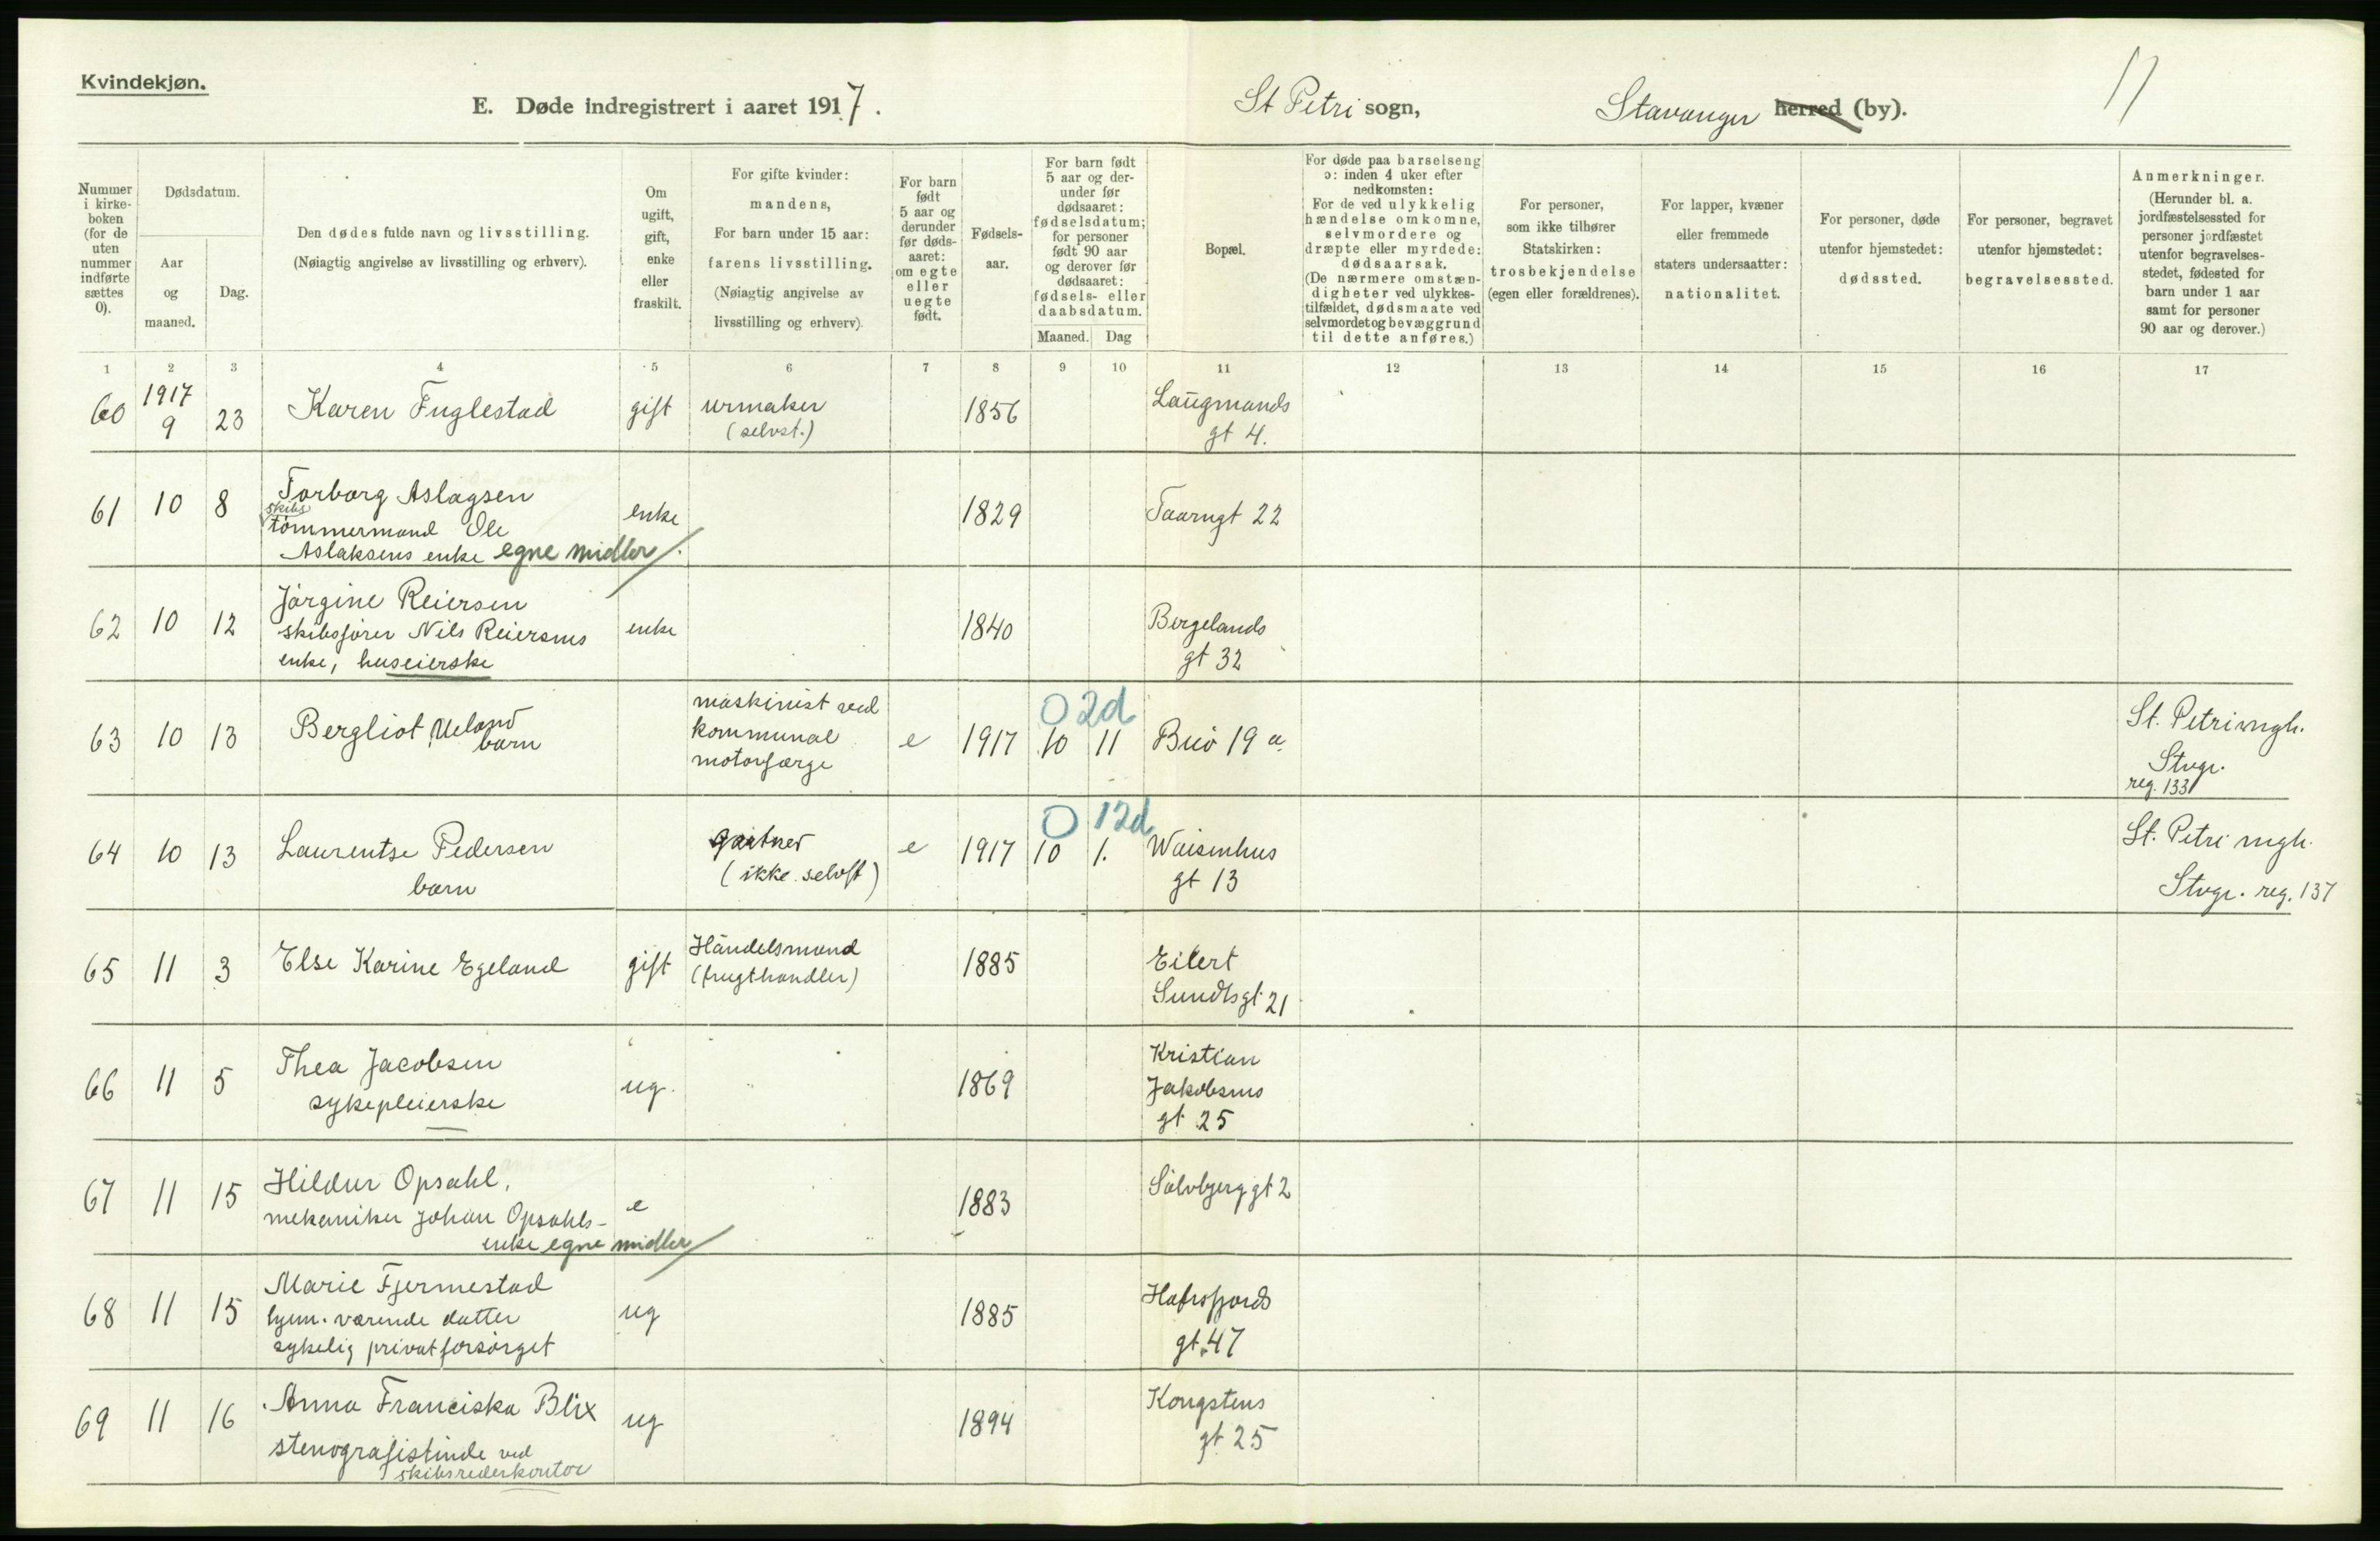 Kvindekjøn.
E. Døde indregistrert i aaret 1917.
St Petri sogn, Stavanger herred (by).
11
Nummer i kirke-boken (for de uten nummer indførte sættes 0).
Dødsdatum.
Aar og maaned.
Dag.
Den dødes fulde navn og livsstilling.
(Nøiagtig angivelse av livsstilling og erhverv).
Om ugift, gift, enke eller fraskilt.
For gifte kvinder: mandens,
For barn under 15 aar: farens livsstilling.
(Nøiagtig angivelse av livsstilling og erhverv).
For barn født 5 aar og derunder før døds-aaret: om egte eller uegte født.
Fødsels-aar.
For barn født 5 aar og der-under før dødsaaret: fødselsdatum; for personer født 90 aar og derover før dødsaaret: fødsels- eller daabsdatum.
Maaned. Dag
Bopæl.
For døde paa barselseng ɔ: inden 4 uker efter nedkomsten:
For de ved ulykkelig hændelse omkomne, selvmordere og dræpte eller myrdede: dødsaarsak.
(De nærmere omstæn-digheter ved ulykkes-tilfældet, dødsmaate ved selvmordet og bevæggrund til dette anføres.)
For personer, som ikke tilhører Statskirken: trosbekjendelse (egen eller forældrenes).
For lapper, kvæner eller fremmede staters undersaatter: nationalitet.
For personer, døde utenfor hjemstedet: dødssted.
For personer, begravet utenfor hjemstedet: begravelsessted.
Anmerkninger.
(Herunder bl. a. jordfæstelsessted for personer jordfæstet utenfor begravelses-stedet, fødested for barn under 1 aar samt for personer 90 aar og derover.)
1 2 3 4 5 6 7 8 9 10 11 12 13 14 15 16 17
60 1917 9 23 Karen Fuglestad gift urmaker (selvst.) 1856 Laugmands gt 4.
61 10 8 Torborg Aslagsen skibstømmermand Ole Aslaksens enke egne midler enke 1829 Taarngt 22
62 10 12 Jørgine Reiersen skibsfører Nils Reiersens enke, huseierske enke 1840 Bergelands gt 32
63 10 13 Bergliot Ueland barn maskinist ved kommunal motorfærge e 1917 10 11 0 2d Buø 19 a St. Petri mgh. Stvgr. reg. 133
64 10 13 Laurentse Pedersen barn gartner (ikke selvst) e 1917 10 1. 0 12d Waisenhus gt 13 St. Petri mgh. Stvgr. reg. 137
65 11 3 Else Karine Egeland gift Handelsmand (frugthandler) 1885 Eilert Sundtsgt 21
66 11 5 Thea Jacobsen sykepleierske ug. 1869 Kristian Jakobsens gt 25
67 11 15 Hildur Opsahl, mekaniker Johan Opsahls- enke egne midler e 1883 Sølvbjerggt 2
68 11 15 Marie Fjermestad hjem. værende datter sykelig privat forsørget ug 1885 Hafrsfjords gt. 47
69 11 16 Anna Franciska Blix stenografistinde ved skibsrederkontor ug 1894 Kongstens gt 25